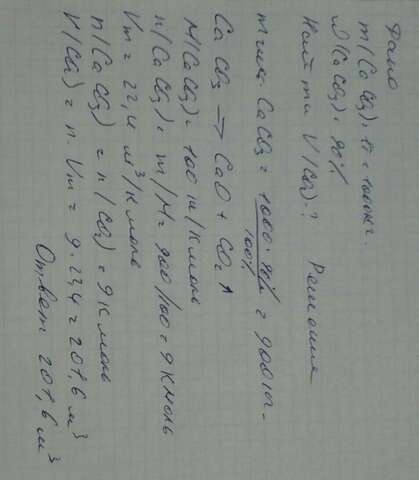 Дано
m(CaCO3) = 1т = 1000кг.
ω(CaCO3) = 90%
Найти V(CO2) - ?
Решение
m чист. CaCO3 = 1000 · 90% / 100% = 900 кг.
CaCO3 → CaO + CO2↑
M(CaCO3) = 100 кг/кмоль
n(CaCO3) = m/M = 900/100 = 9 кмоль
Vm = 22,4 м³/кмоль
n(CaCO3) = n(CO2) = 9 кмоль
V(CO2) = n · Vm = 9 · 22,4 = 201,6 м³
Ответ 201,6 м³